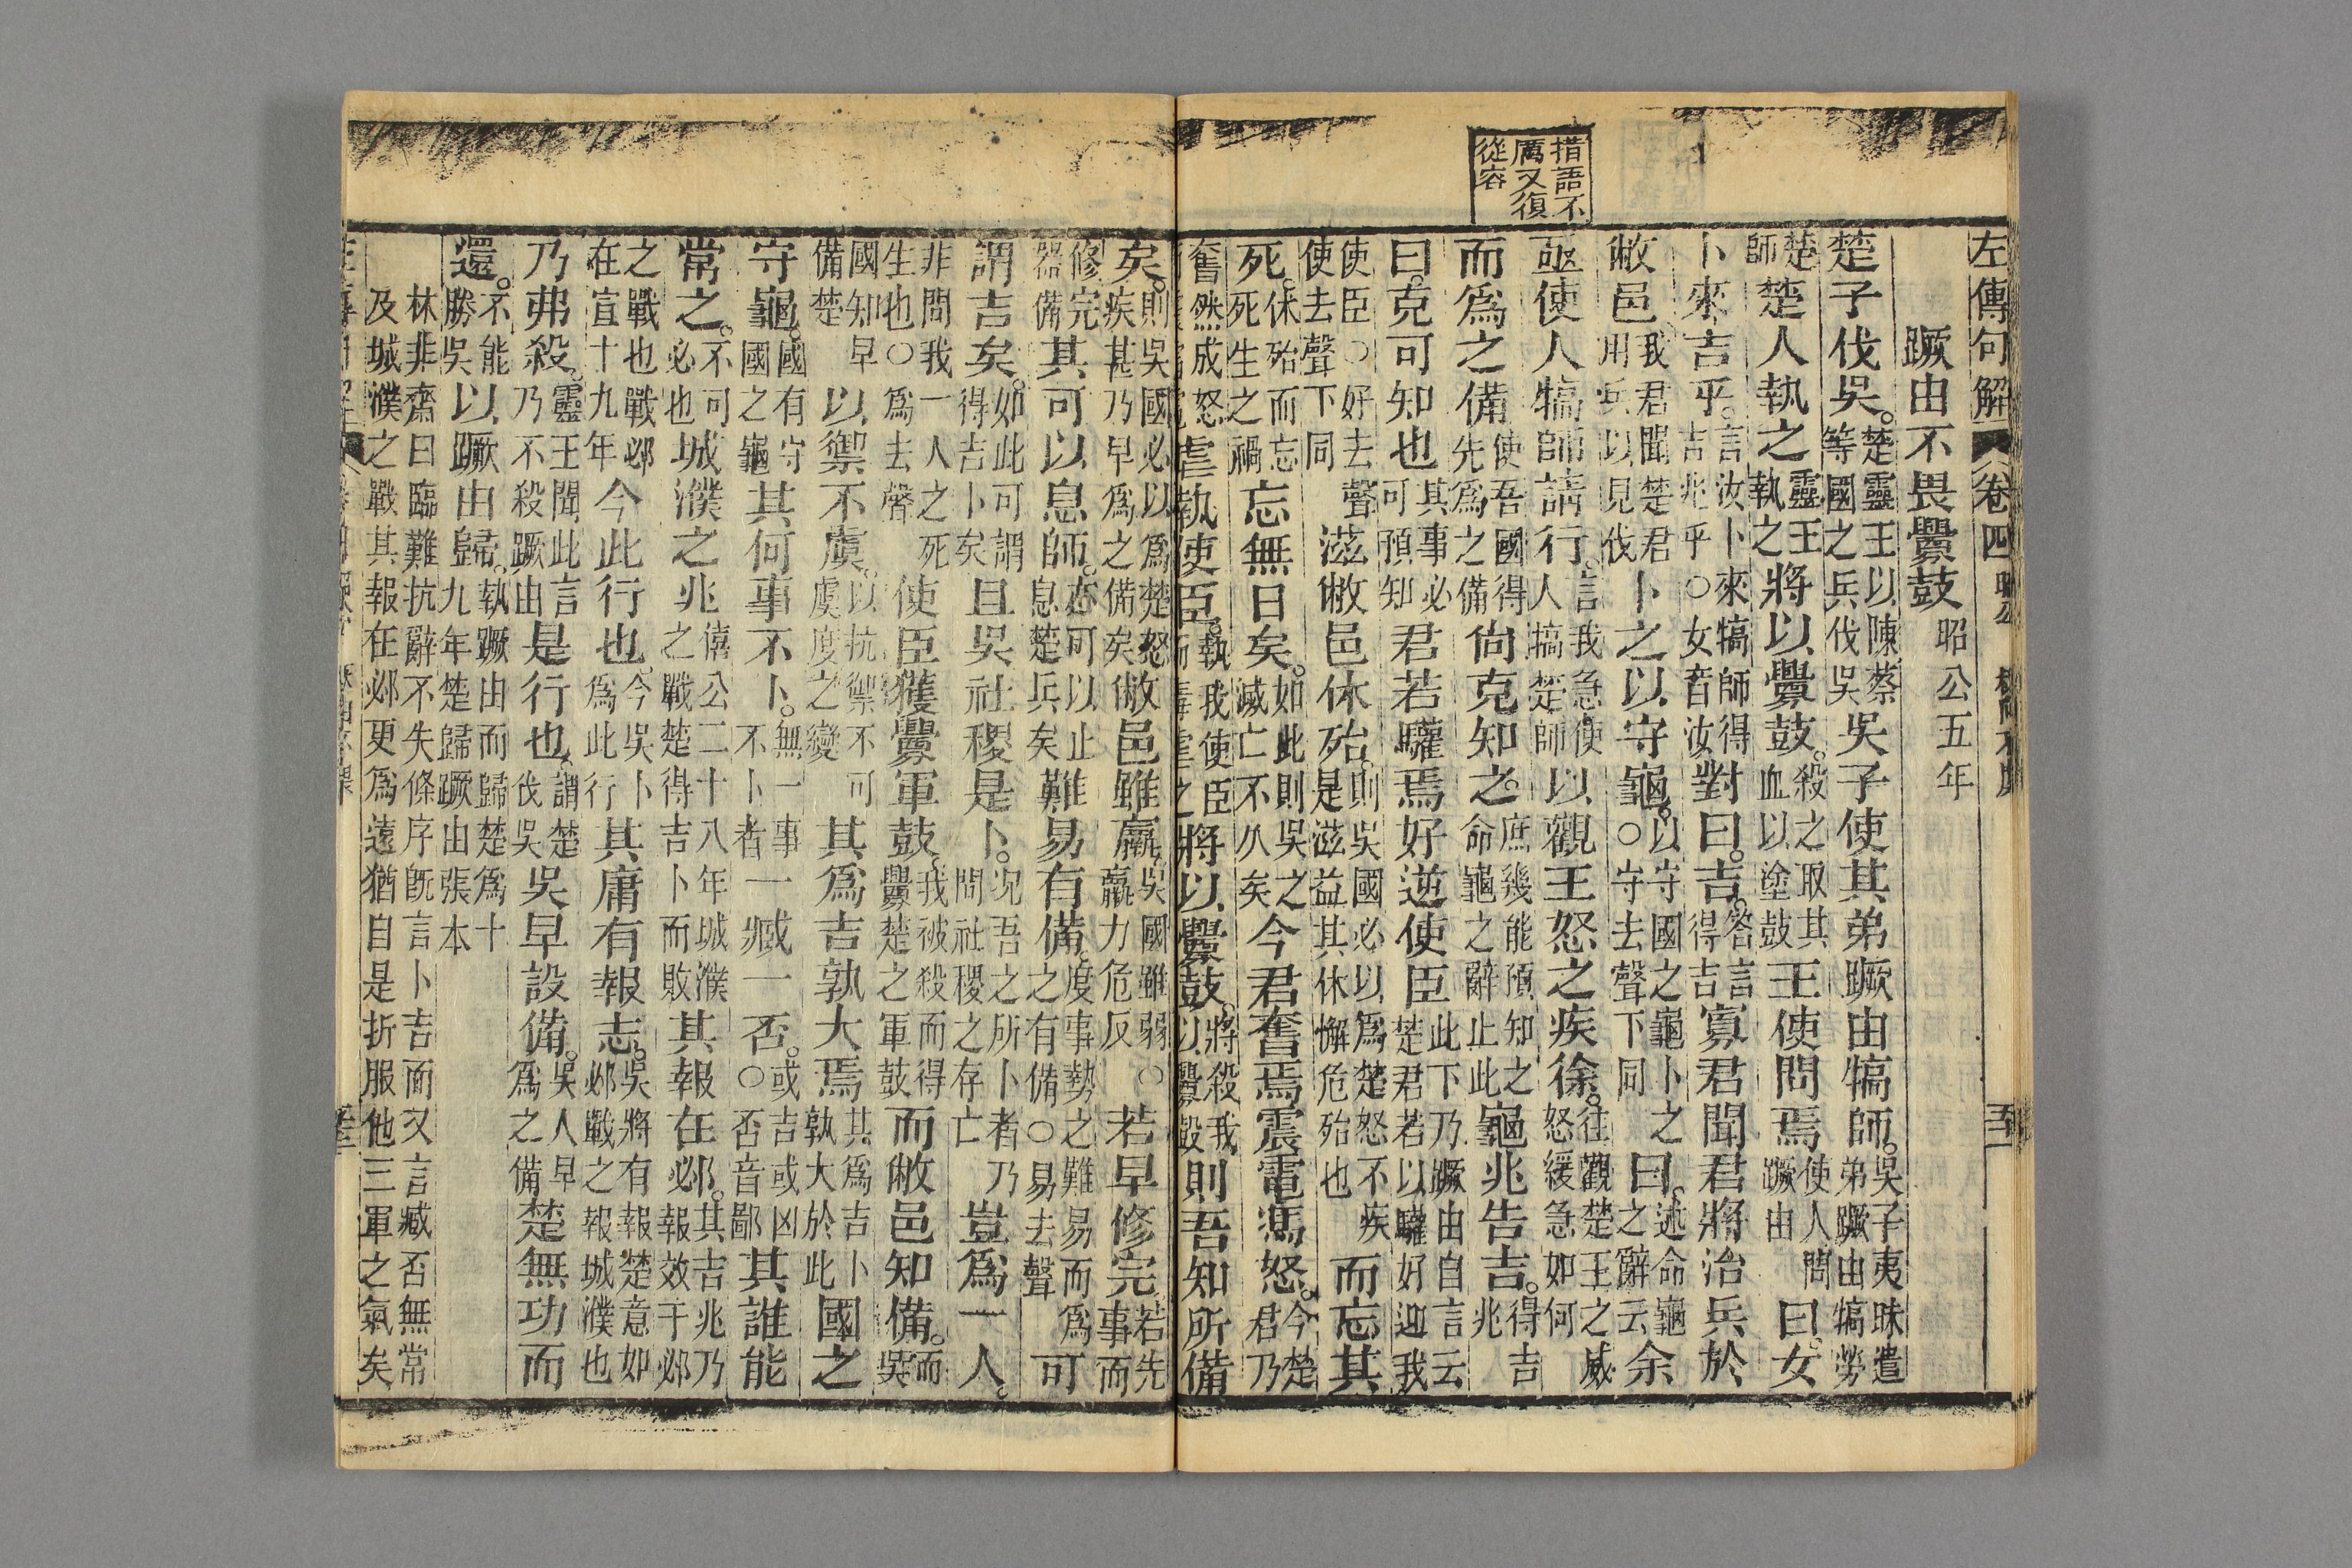 左傳句解 卷四 昭公
措語不
厲又復
從容
蹶由不畏釁鼓 昭公五年
楚子伐吳。楚靈王以陳蔡等國之兵伐吳吳子使其弟蹶由犒師。吳子夷昧遣弟蹶由犒勞
楚師楚人執之靈王執之將以釁鼓。殺之取其血以塗鼓王使問焉使人問蹶由曰。女
卜來吉乎。言汝卜來犒師得吉兆乎○女音汝對曰。吉。答言得吉寡君聞君將治兵於
敝邑我君聞楚君用兵以見伐卜之以守龜。以守國之龜卜之○守去聲下同曰。述命龜之辭云余
亟使人犒師請行。言我急使人犒楚師以觀王怒之疾徐。往觀楚王之威怒緩急如何
而爲之備使吾國得先爲之備尙克知之。庶幾能預知之命龜之辭止此龜兆告吉。得吉兆
曰。克可知也其事必可預知君若驩焉好逆使臣此下乃蹶由自言云楚君若以驩好迎我
使臣○好去聲使去聲下同滋敝邑休殆。則吳國必以爲楚怒不疾是滋益其休懈危殆也而忘其
死。休殆而忘死死生之禍忘無日矣。如此則吳之滅亡不久矣今君奮焉震電馮怒。今楚君乃
奮然成怒虐執使臣。執我使臣而毒虐之將以釁鼓。將殺我以釁鼓則吾知所備
矣。則吳國必以爲楚怒疾甚乃早爲之備矣敝邑雖羸吳國雖弱羸力危反○若早修完若先事而
修完器備其可以息師。亦可以止息楚兵矣難易有備。度事勢之難易而爲之有備○易去聲可
謂吉矣。如此可謂得吉卜矣且吳社稷是卜。况吾之所卜者乃問社稷之存亡豈爲一人。
非問我一人之死生也○爲去聲使臣獲釁軍鼓。我被殺而得釁楚之軍鼓而敝邑知備。而吳
國知早備楚以禦不虞。以抗禦不可虞度之變其爲吉孰大焉其爲吉卜孰大於此國之
守龜。國有守國之龜其何事不卜。無一事不卜者一臧一否。或吉或凶○否音鄙其誰能
常之。不可必也城濮之兆僖公二十八年城濮之戰楚得吉卜而敗其報在邲。其吉兆乃必報效于邲
之戰也戰邲在宣十九年今此行也。今吳卜爲此行其庸有報志。吳將有報楚意如邲戰之報城濮也
乃弗殺。靈王聞此言乃不殺蹶由是行也。謂楚伐吳吳早設備。吳人早爲之備楚無功而
還。不能勝吳以蹶由歸。執蹶由而歸楚爲十九年楚歸蹶由張本
林非齋曰臨難抗辭不失條序旣言卜吉而又言臧否無常
及城濮之戰其報在邲更爲遠猶自是折服他三軍之氣矣